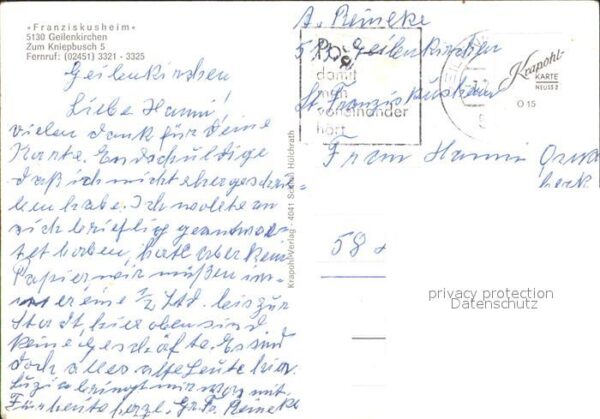 «Franziskusheim»
5130 Geilenkirchen
Zum Kniepbusch 5
Fernruf: (02451) 3321 - 3325
Geilenkirchen
Liebe Hanni!
vielen Dank für Deine
Karte. Endschuldige
daß ich nicht eher geschrie
ben habe. Ich wollte an
sich brieflig geantwor
tet haben, hatte aber kein
Papier wir müßen im
mer eine 1/2 Std. bis zur
Stadt, hier oben sind
keine Geschäfte. Es sind
doch alles alte Leute hier.
Luzia bringt mir mit.
Für heute herzl. Gr. Reineke
Krapohl-Verlag - 4041 Schloß Hülchrath
A. Reineke
5130 Geilenkirchen
St. Franziskusheim
damit
man
voneinander
hört
Krapohl-
KARTE
NEUSS 2
O 15
Frau Hanni
58
privacy protection
Datenschutz